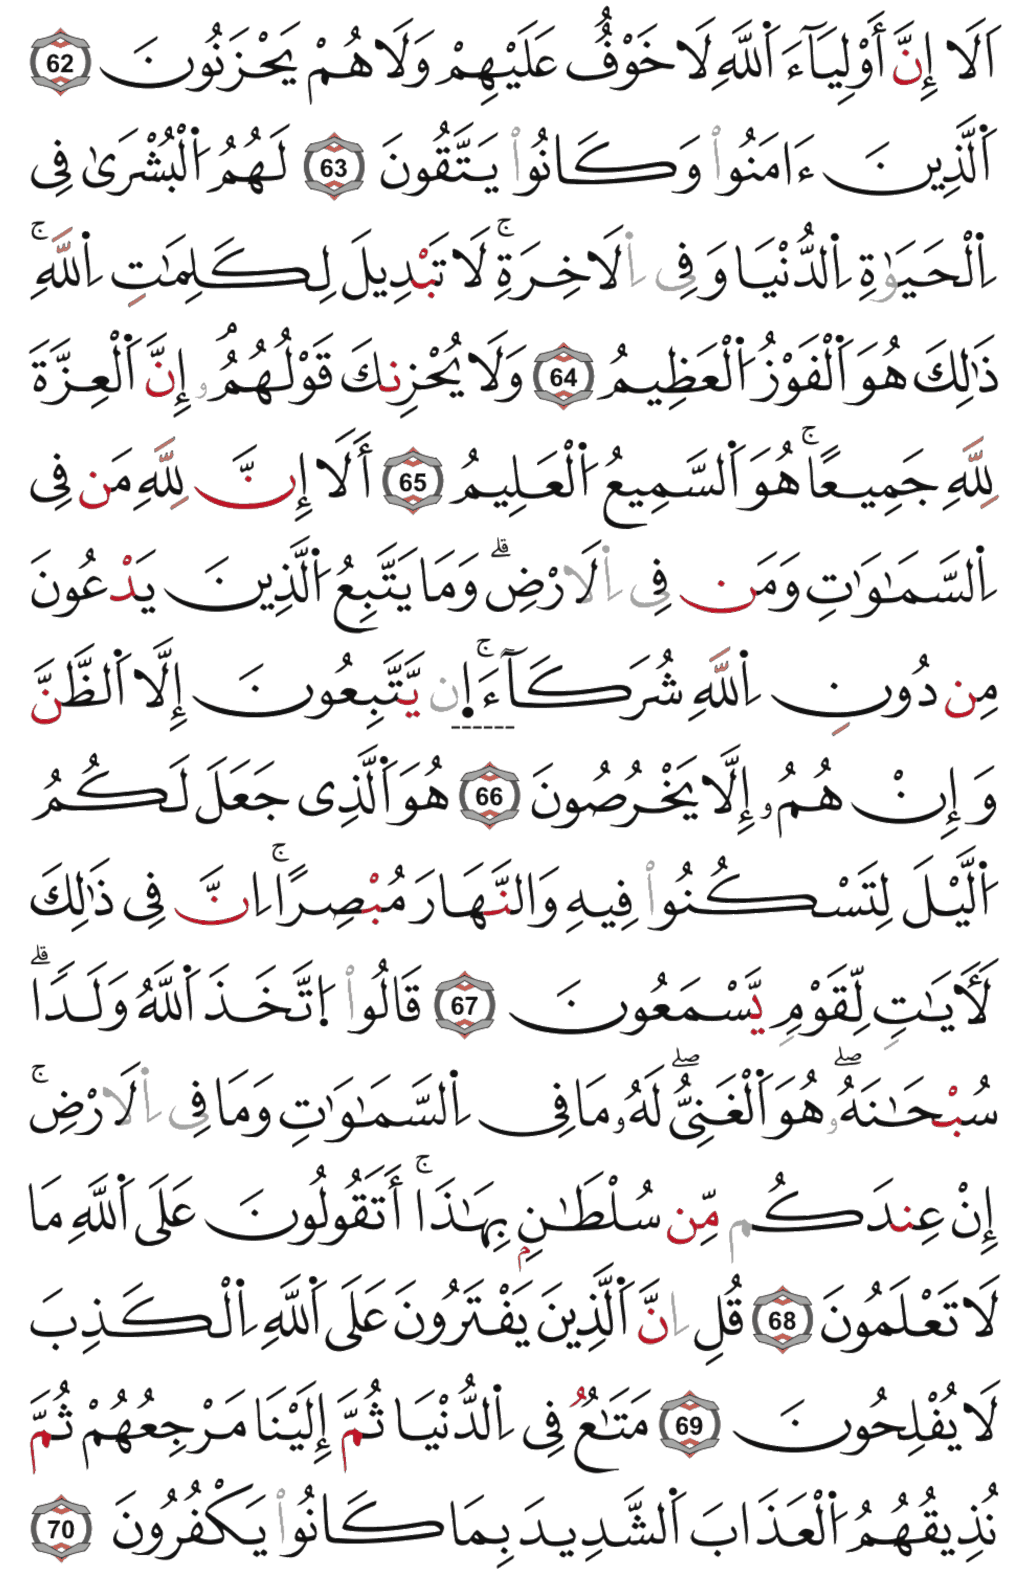 اَلَا إِنَّ أَوْلِيَآءَ اَ۬للَّهِ لَا خَوْفٌ عَلَيْهِمْ وَلَا هُمْ يَحْزَنُونَ 62
اَ۬لَّذِينَ ءَامَنُواْ وَكَانُواْ يَتَّقُونَ 63 لَهُمُ اُ۬لْبُشْرَىٰ فِى
اِ۬لْحَيَوٰةِ اِ۬لدُّنْيَا وَفِى اِ۬لَاخِرَةِۚ لَا تَبْدِيلَ لِكَلِمَٰتِ اِ۬للَّهِۚ
ذَٰلِكَ هُوَ اَ۬لْفَوْزُ اُ۬لْعَظِيمُ 64 وَلَا يُحْزِنكَ قَوْلُهُمُۥ إِنَّ اَ۬لْعِزَّةَ
لِلَّهِ جَمِيعًاۚ هُوَ اَ۬لسَّمِيعُ اُ۬لْعَلِيمُ 65 أَلَا إِنَّ لِلَّهِ مَن فِى
اِ۬لسَّمَٰوَٰتِ وَمَن فِى اِ۬لَارْضِۗ وَمَا يَتَّبِعُ اُ۬لَّذِينَ يَدْعُونَ
مِن دُونِ اِ۬للَّهِ شُرَكَآءَۚ ا۪ن يَّتَّبِعُونَ إِلَّا اَ۬لظَّنَّ
وَإِنْ هُمُۥ إِلَّا يَخْرُصُونَ 66 هُوَ اَ۬لَّذِى جَعَلَ لَكُمُ
اُ۬لَّيْلَ لِتَسْكُنُواْ فِيهِ وَالنَّهَارَ مُبْصِرًاۚ اِنَّ فِى ذَٰلِكَ
لَأٓيَٰتٍ لِّقَوْمٍ يَّسْمَعُونَ 67 قَالُواْ اُ۪تَّخَذَ اَ۬للَّهُ وَلَدًاۗ
سُبْحَٰنَهُۥۖ هُوَ اَ۬لْغَنِىُّۖ لَهُۥ مَا فِى اِ۬لسَّمَٰوَٰتِ وَمَا فِى اِ۬لَارْضِۚ
إِنْ عِندَكُم مِّن سُلْطَٰنِۢ بِهَٰذَاۚ أَتَقُولُونَ عَلَى اَ۬للَّهِ مَا
لَا تَعْلَمُونَ 68 قُلِ اِنَّ اَ۬لَّذِينَ يَفْتَرُونَ عَلَى اَ۬للَّهِ اِ۬لْكَذِبَ
لَا يُفْلِحُونَ 69 مَتَٰعٌ فِى اِ۬لدُّنْيَا ثُمَّ إِلَيْنَا مَرْجِعُهُمْ ثُمَّ
نُذِيقُهُمُ اُ۬لْعَذَابَ اَ۬لشَّدِيدَ بِمَا كَانُواْ يَكْفُرُونَ 70